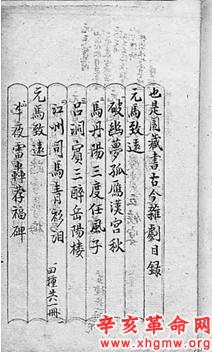 也是園藏書古今雜劇目錄
元馬致遠
破幽夢孤雁漢宮秋
馬丹陽三度任風子
呂洞賓三醉岳陽樓
江州司馬青衫淚
四種共一冊
元馬致遠
半夜雷轟荐福碑
辛亥革命网
www.xhgmw.org